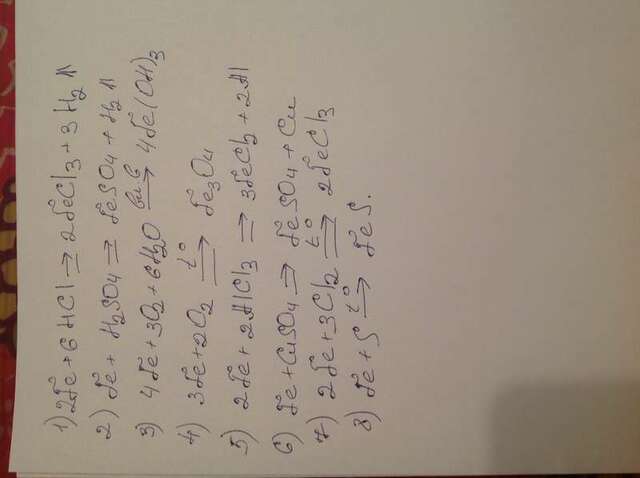 1) 2Fe + 6HCl ⇒ 2FeCl3 + 3H2↑
2) Fe + H2SO4 ⇒ FeSO4 + H2↑
3) 4Fe + 3O2 + 6H2O ⇒ 4Fe(OH)3
4) 3Fe + 2O2 t° ⇒ Fe3O4
5) 2Fe + 2AlCl3 ⇒ 3FeCl2 + 2Al
6) Fe + CuSO4 ⇒ FeSO4 + Cu
7) 2Fe + 3Cl2 t° ⇒ 2FeCl3
8) Fe + S t° ⇒ FeS.